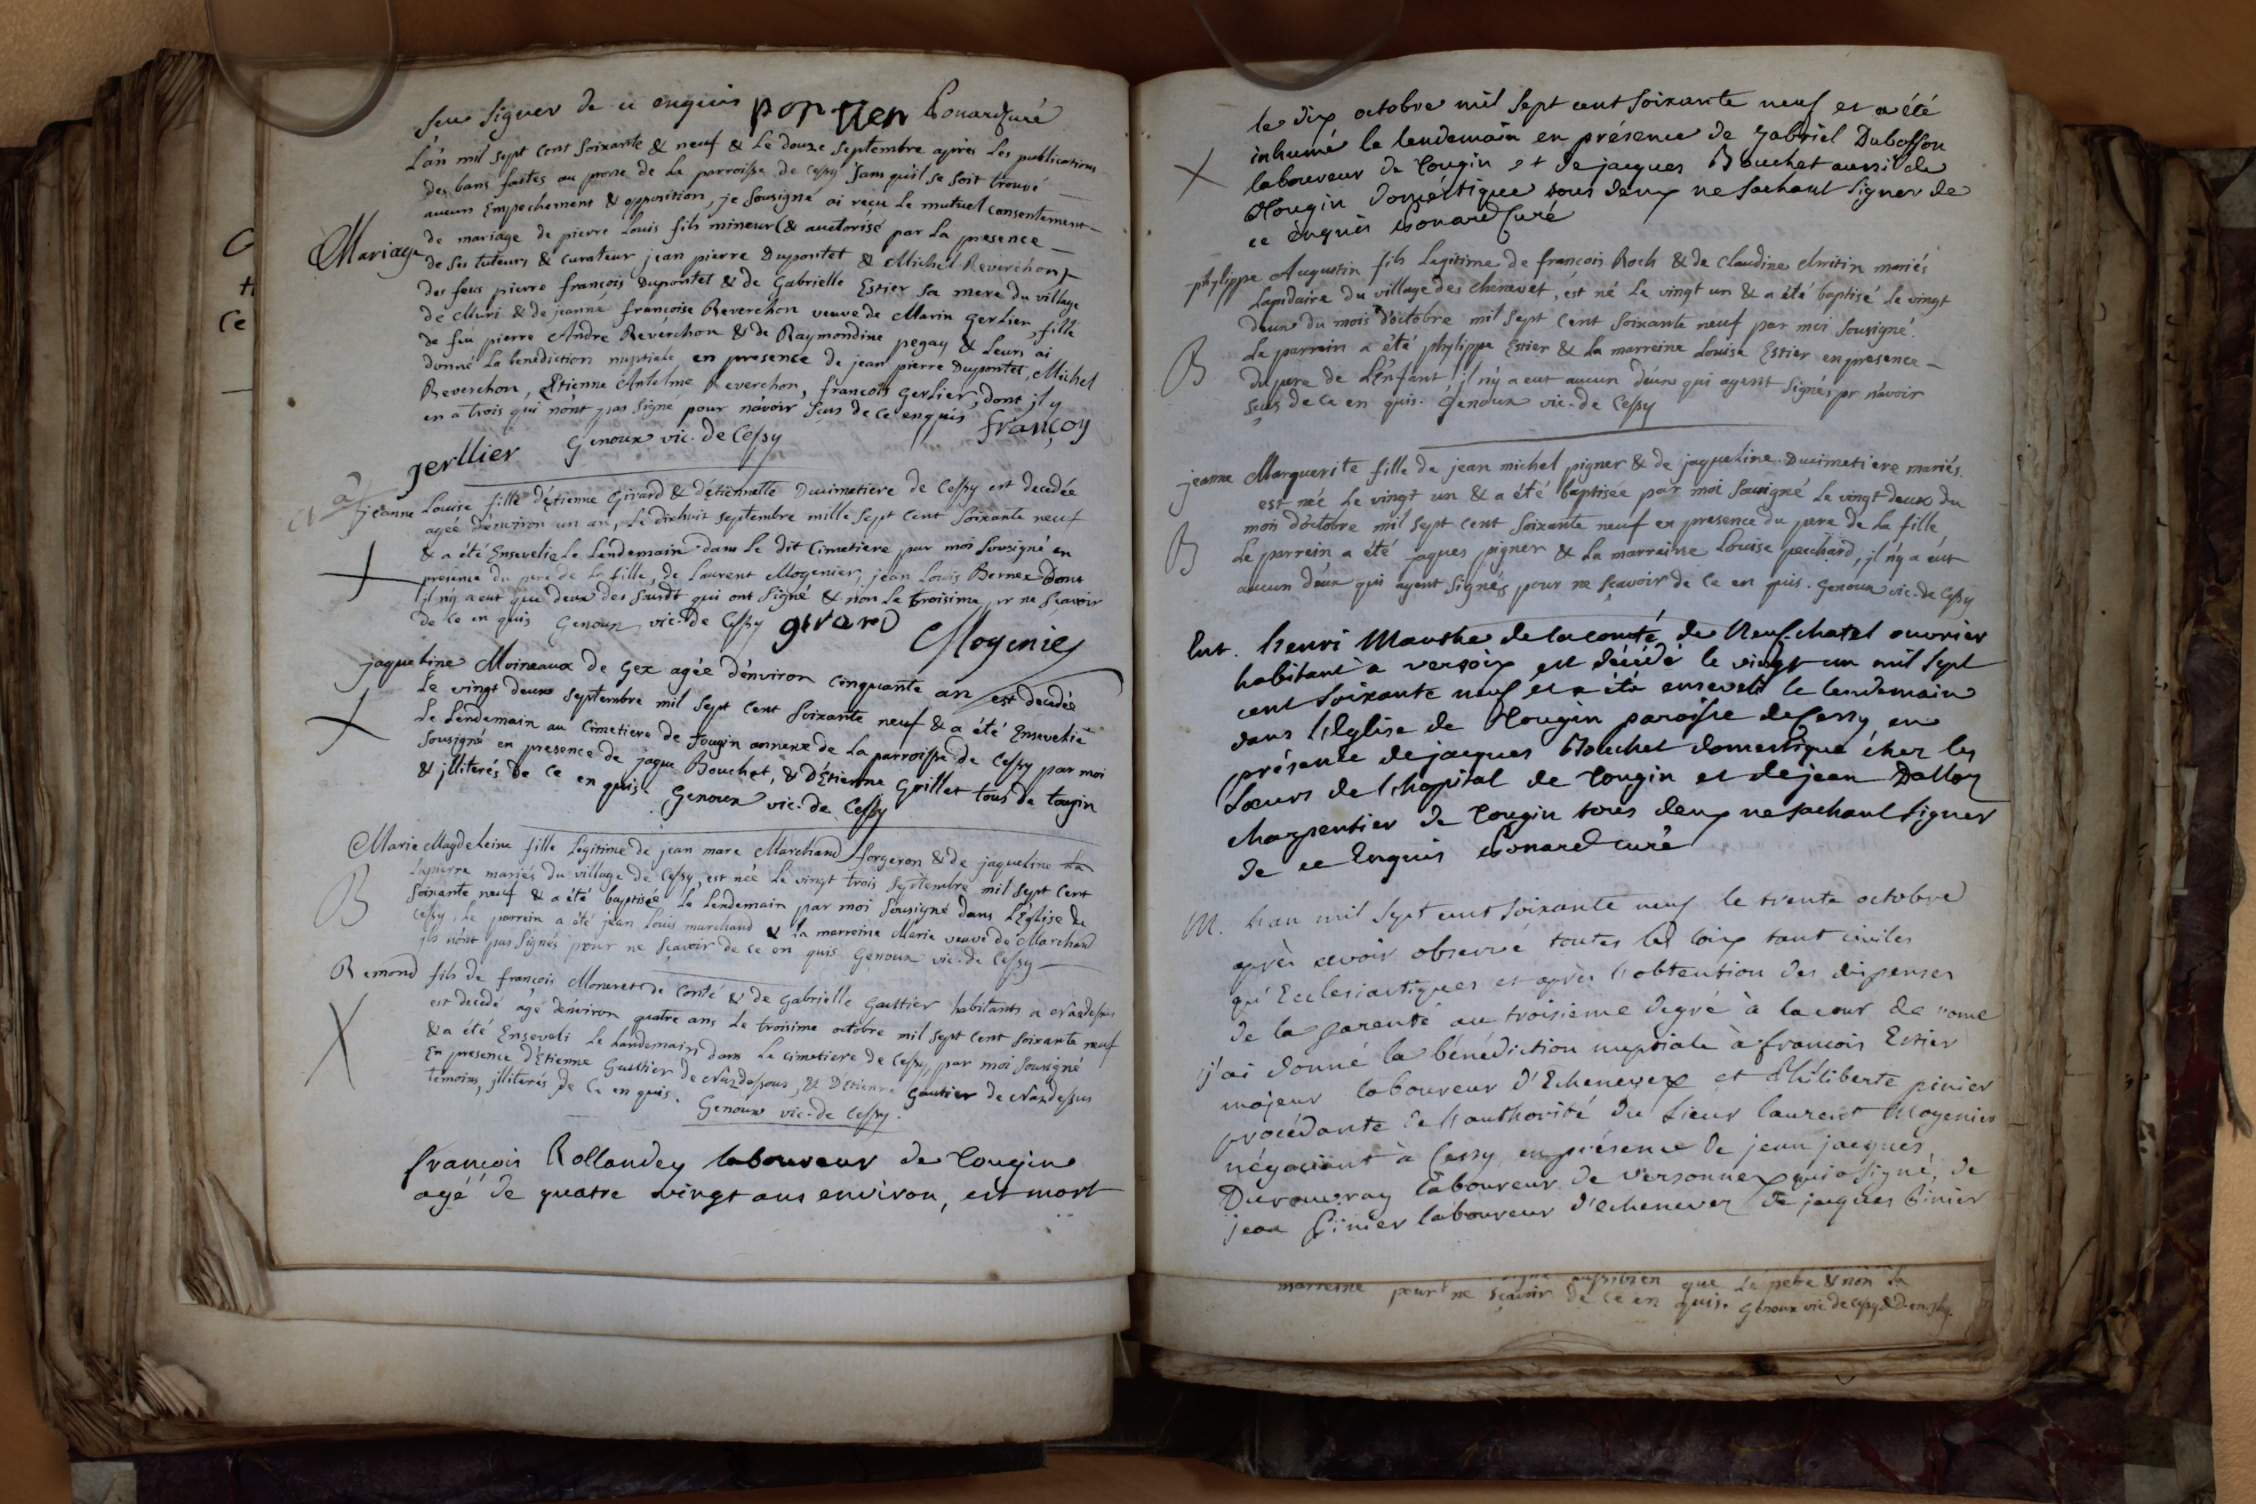 seu signer de ce enquis pontien Bonard curé
L'an mil sept cent soixante & neuf & Le douze septembre après Les publications
des bans faites au prone de La parroisse de Cessy sans qu'il se soit trouvé
aucun Empechement & opposition, je sousigné ai reçu Le mutuel consentement
Mariage
de mariage de pierre Louis fils mineur (& auctorisé par La presence
de ses tuteurs & curateur jean pierre Dupontet & Michel Reverchon)
des feus pierre françois Dupontet & de Gabrielle Estier sa mere du village
de Muri & de jeanne françoise Reverchon veuve de Marin Gerlier, fille
de feu pierre André Reverchon & de Raymondine pegay & Leurs ai
donné La benediction nuptiale en presence de jean pierre Dupontet, Michel
Reverchon, Etienne Antelme Reverchon, françois Gerlier, dont jl y
en a trois qui n'ont pas signé pour n'avoir sçus de ce enquis françoy
gerllier Genoux vic. de Cessy
jeanne Louise fille d'étienne Girard & d'étiennette Ducimetiere de Cessy est decedée
agée d'environ un an, Le dixhuit septembre mille sept cent soixante neuf
& a été Ensevelie Le Lendemain dans Le dit Cimetiere par moi sousigné en
presence du pere de La fille, de Laurent Mogenier, jean Louis Bernex Dont
jl n'y a eut que deux des susdt qui ont signé & non Le troisime pr ne sçavoir
de ce en quis Genoux vic. de Cessy girard Mogenier
jaqueline Moineaux de Gex agée d'environ cinquante an est decedée
Le vingt deux septembre mil sept cent soixante neuf & a été Ensevelie
Le Lendemain au Cimetiere de Tougin annexe de La parroisse de Cessy par moi
sousigné en presence de jaque Bouchet, & d'Etienne Grillet tous de tougin
& jlliterés de ce en quis. Genoux vic. de Cessy
Marie Magdeleine fille Legitime de jean marc Marchand forgeron & de jaqueline La
Lapierre mariés du village de Cessy, est née Le vingt trois septembre mil sept cent
B
soixante neuf & a été baptisée Le Lendemain par moi sousigné dans L'Eglise de
Cessy, Le parrein a été jean Louis marchand & La marreine Marie veuve de Marchand
jls n'ont pas signés pour ne sçavoir de ce en quis Genoux vic. de Cessy
Remond fils de françois Monuret de Conté & de Gabrielle Gauttier habitants a
est decedé agé d'environ quatre ans Le troisime octobre mil sept cent soixante neuf
& a été Enseveli Le Landemain dans Le cimetiere de Cessy, par moi sousigné
En presence d'Etienne Gauttier de , & d'Etienne Gautier de
temoins, jlliterés de ce en quis. Genoux vic. de Cessy.
françois Rollandey laboureur de Tougin
agé de quatre vingt ans environ, est mort
le dix octobre mil sept cent soixante neuf et a été
inhumé le lendemain en présence de gabriel Duboffon
laboureur de tougin et de jacques Bouchet aussi de
tougin Domestique tous deux ne sachant signer de
ce enquis Bonard Curé
phylippe Augustin fils Legitime de françois Roch & de Claudine mariés
Lapidaire du village des chenevet, est né Le vingt un & a été baptisé Le vingt
deux du mois d'octobre mil sept cent soixante neuf par moi sousigné.
B
Le parrein a été phylippe Estier & La marreine Louise Estier en presence
du pere de L'enfant, jl n'y a eut aucun d'eux qui ayent signés pr n'avoir
sçus de ce en quis. Genoux vic. de Cessy
jeanne Marguerite fille de jean michel pigner & de jaqueline Ducimetiere mariés.
est née Le vingt un & a été baptisée par moi sousigné Le vingt deux du
mois d'octobre mil sept cent soixante neuf en presence du pere de La fille
B
Le parrein a été jaques pigner & La marreine Louise pouchard, jl n'y a eut
aucun d'eux qui ayent signés pour ne sçavoir de ce en quis. Genoux vic. de Cessy
Ent. henri Manthe de la comté de Neufchatel ouvrier
habitant à versoix est décédé le vingt un mil sept
cent soixante neuf et a été enseveli le lendemain
dans l'Eglise de Tougin paroisse de Cessy en
présence de jacques Bouchet domestique chez les
soeurs de l'hopital de Tougin et de jean Dalloz
charpentier de Tougin tous deux ne sachant signer
de ce Enquis Bonard curé
M. L'an mil sept cent soixante neuf le trente octobre
après avoir observé toutes les loix tant civiles
qu'Ecclesiastiques et après l'obtention des dispenses
de la parenté au troisième degré à la cour de rome
j'ai donné la bénédiction nuptiale à françois Estier
majeur laboureur d'Echenevex et Philiberte pinier
procédante de l'authorité du sieur laurent Mogenier
négociant à Cessy en présence de jean jacques
Durouvray laboureur de versonnex qui a signé, de
jean pinier laboureur d'echenevex de jacques pinier
aussibien que Le pere & non La
marreine pour ne sçavoir de ce en quis. Genoux vic de Cessy